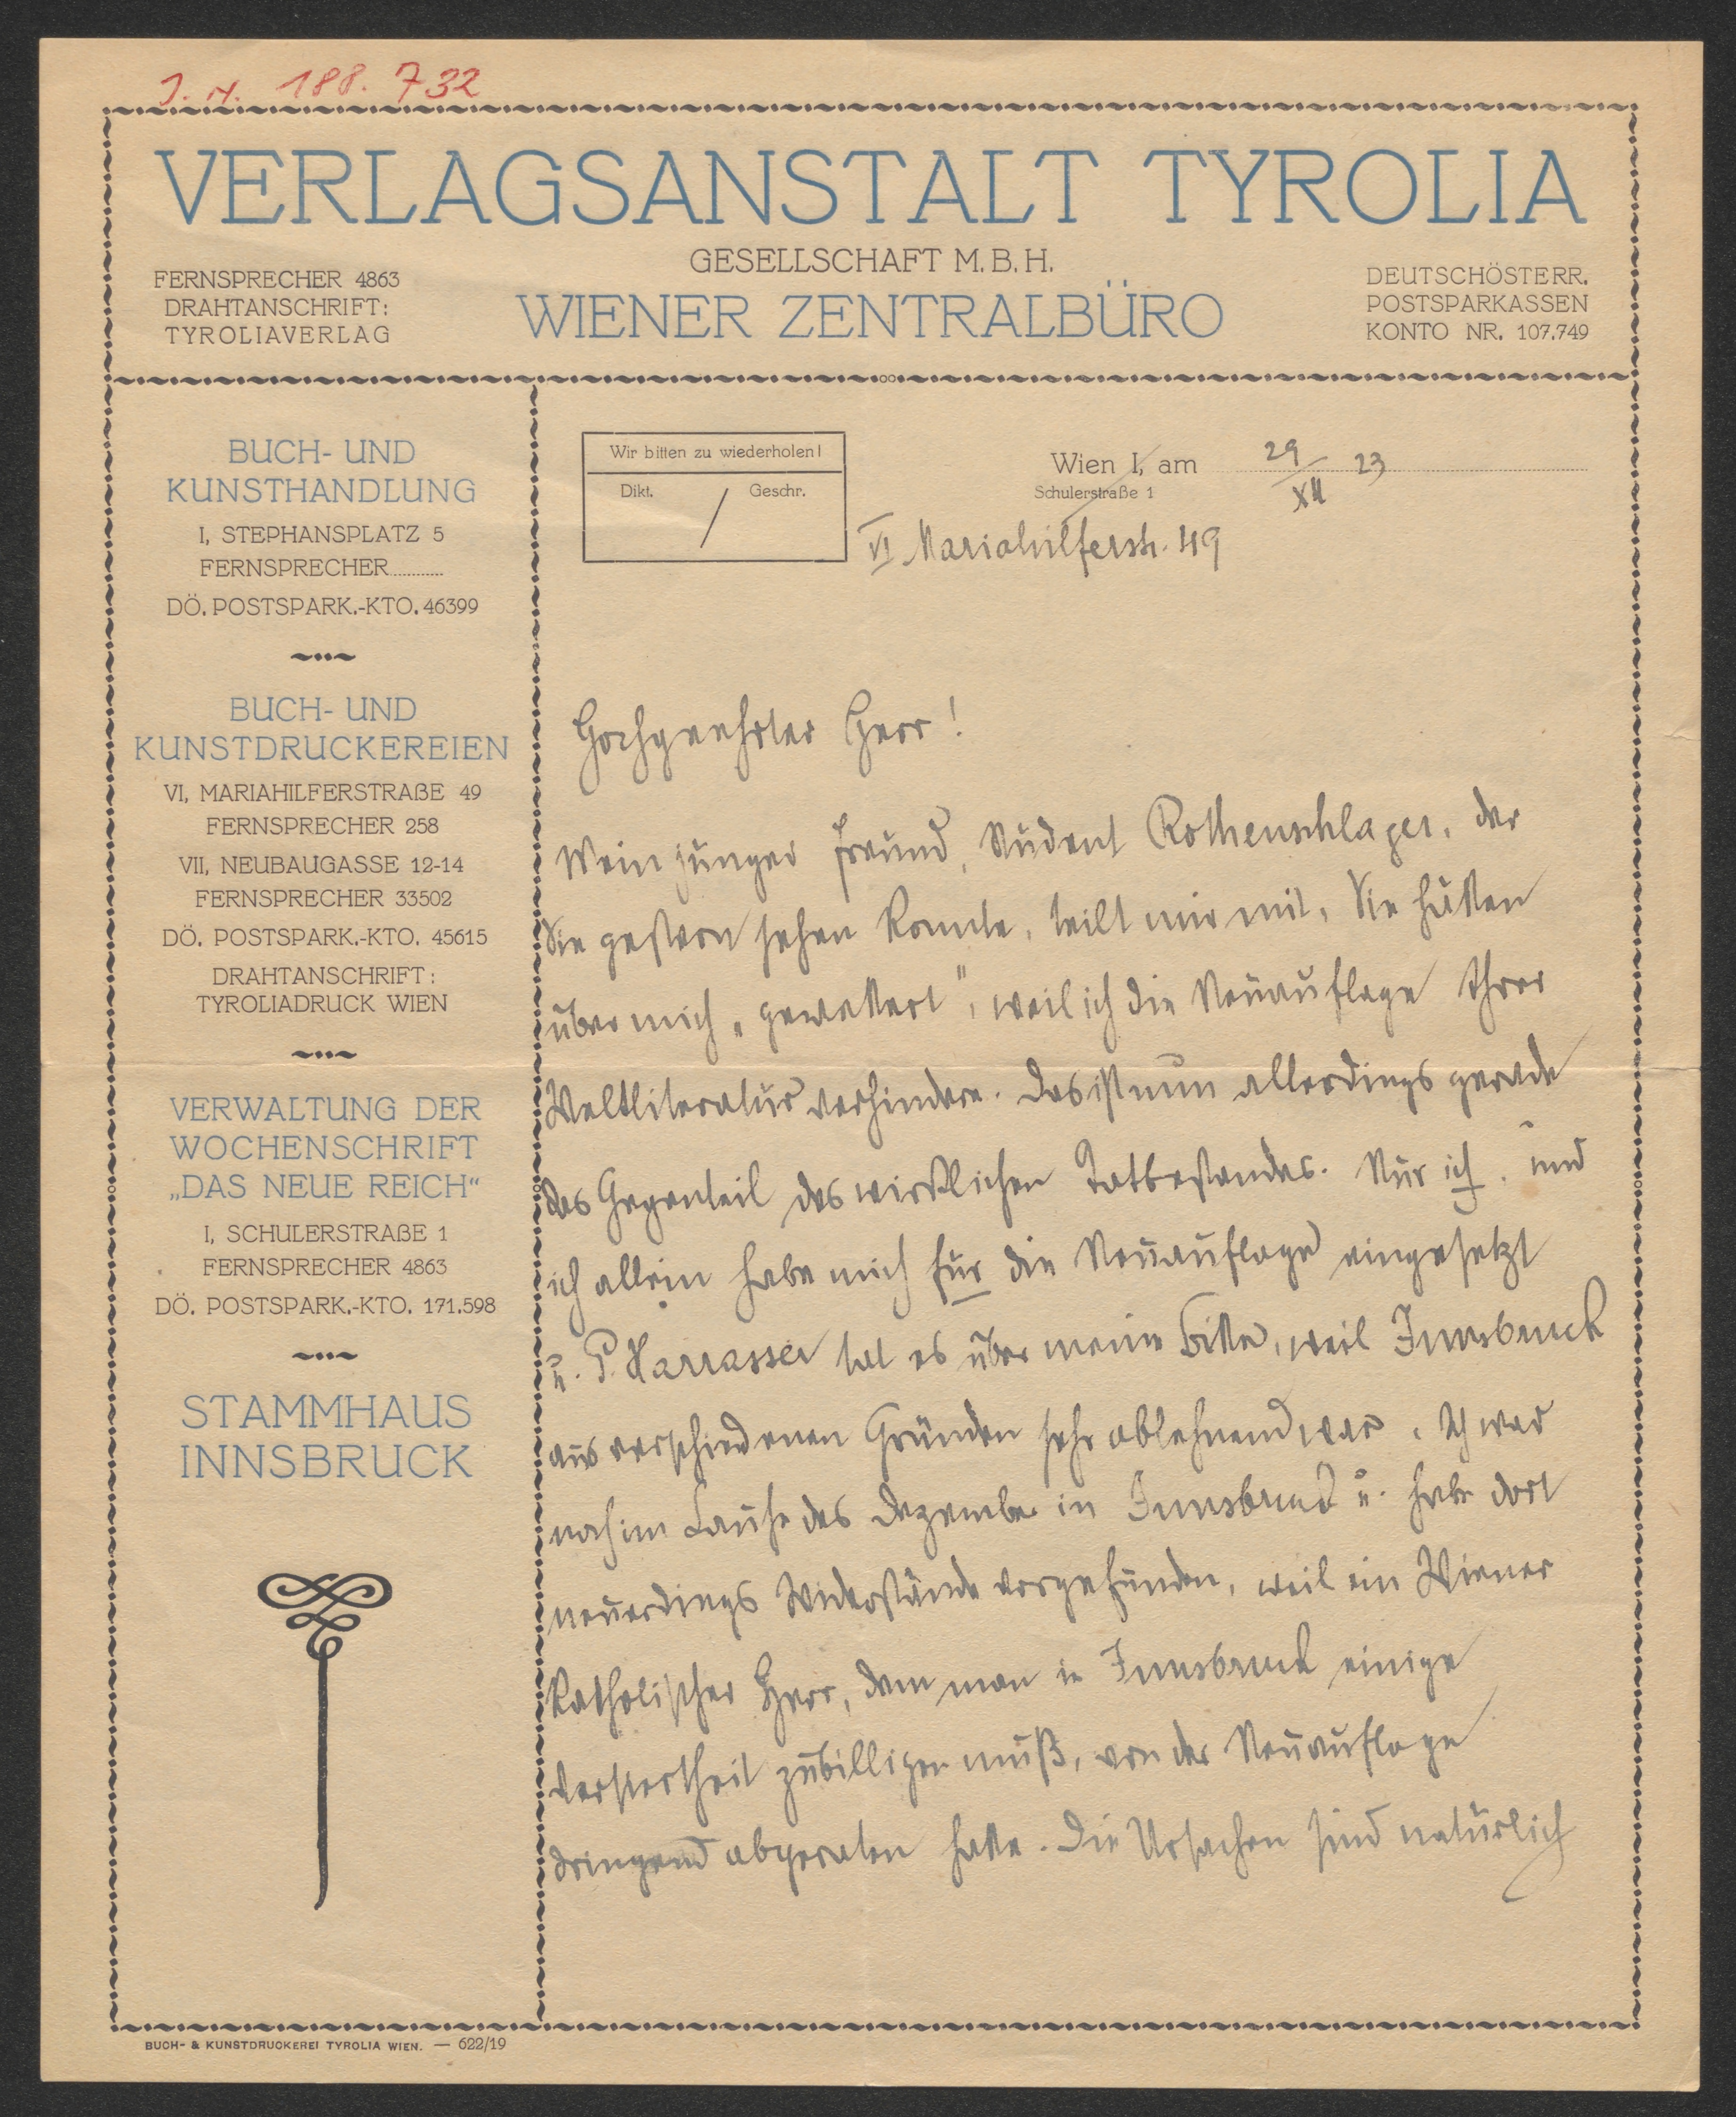 J. N. 188.732
VERLAGSANSTALT TYROLIA
GESELLSCHAFT M. B. H.
WIENER ZENTRALBÜRO
FERNSPRECHER 4863
DRAHTANSCHRIFT:
TYROLIAVERLAG
DEUTSCHÖSTERR.
POSTSPARKASSEN
KONTO NR. 107.749
BUCH- UND
KUNSTHANDLUNG
I, STEPHANSPLATZ 5
FERNSPRECHER
DÖ. POSTSPARK.-KTO. 46399
BUCH- UND
KUNSTDRUCKEREIEN
VI, MARIAHILFERSTRAßE 49
FERNSPRECHER 258
VII, NEUBAUGASSE 12-14
FERNSPRECHER 33502
DÖ. POSTSPARK.-KTO. 45615
DRAHTANSCHRIFT:
TYROLIADRUCK WIEN
VERWALTUNG DER
WOCHENSCHRIFT
„DAS NEUE REICH“
I, SCHULERSTRAßE 1
FERNSPRECHER 4863
DÖ. POSTSPARK.-KTO. 171.598
STAMMHAUS
INNSBRUCK
Wir bitten zu wiederholen!
Dikt. / Geschr.
Wien I, am 29/XII 23
Schulerstraße 1
VI Mariahilferstr. 49
Hochgeehrter Herr!
Mein junger Freund, Student Rothenschlager, der
Sie gestern sehen konnte, teilt mir mit, Sie hätten
über mich „gewettert“, weil ich die Neuauflage Ihrer
Weltliteratur verhindere. Das ist nun allerdings gerade
das Gegenteil des wirklichen Tatbestandes. Nur ich, und
ich allein habe mich für die Neuauflage eingesetzt
u. P. Harrasser tat es über meine Bitte, weil Innsbruck
aus verschiedenen Gründen sehr ablehnend war. Ich war
noch im Laufe des Dezember in Innsbruck u. habe dort
neuerdings Widerstände vorgefunden, weil ein Wiener
katholischer Herr, dem man in Innsbruck einige
Versiertheit zubilligen muß, von der Neuauflage
dringend abgeraten hatte. Die Ursachen sind natürlich
BUCH- & KUNSTDRUCKEREI TYROLIA WIEN. — 622/19